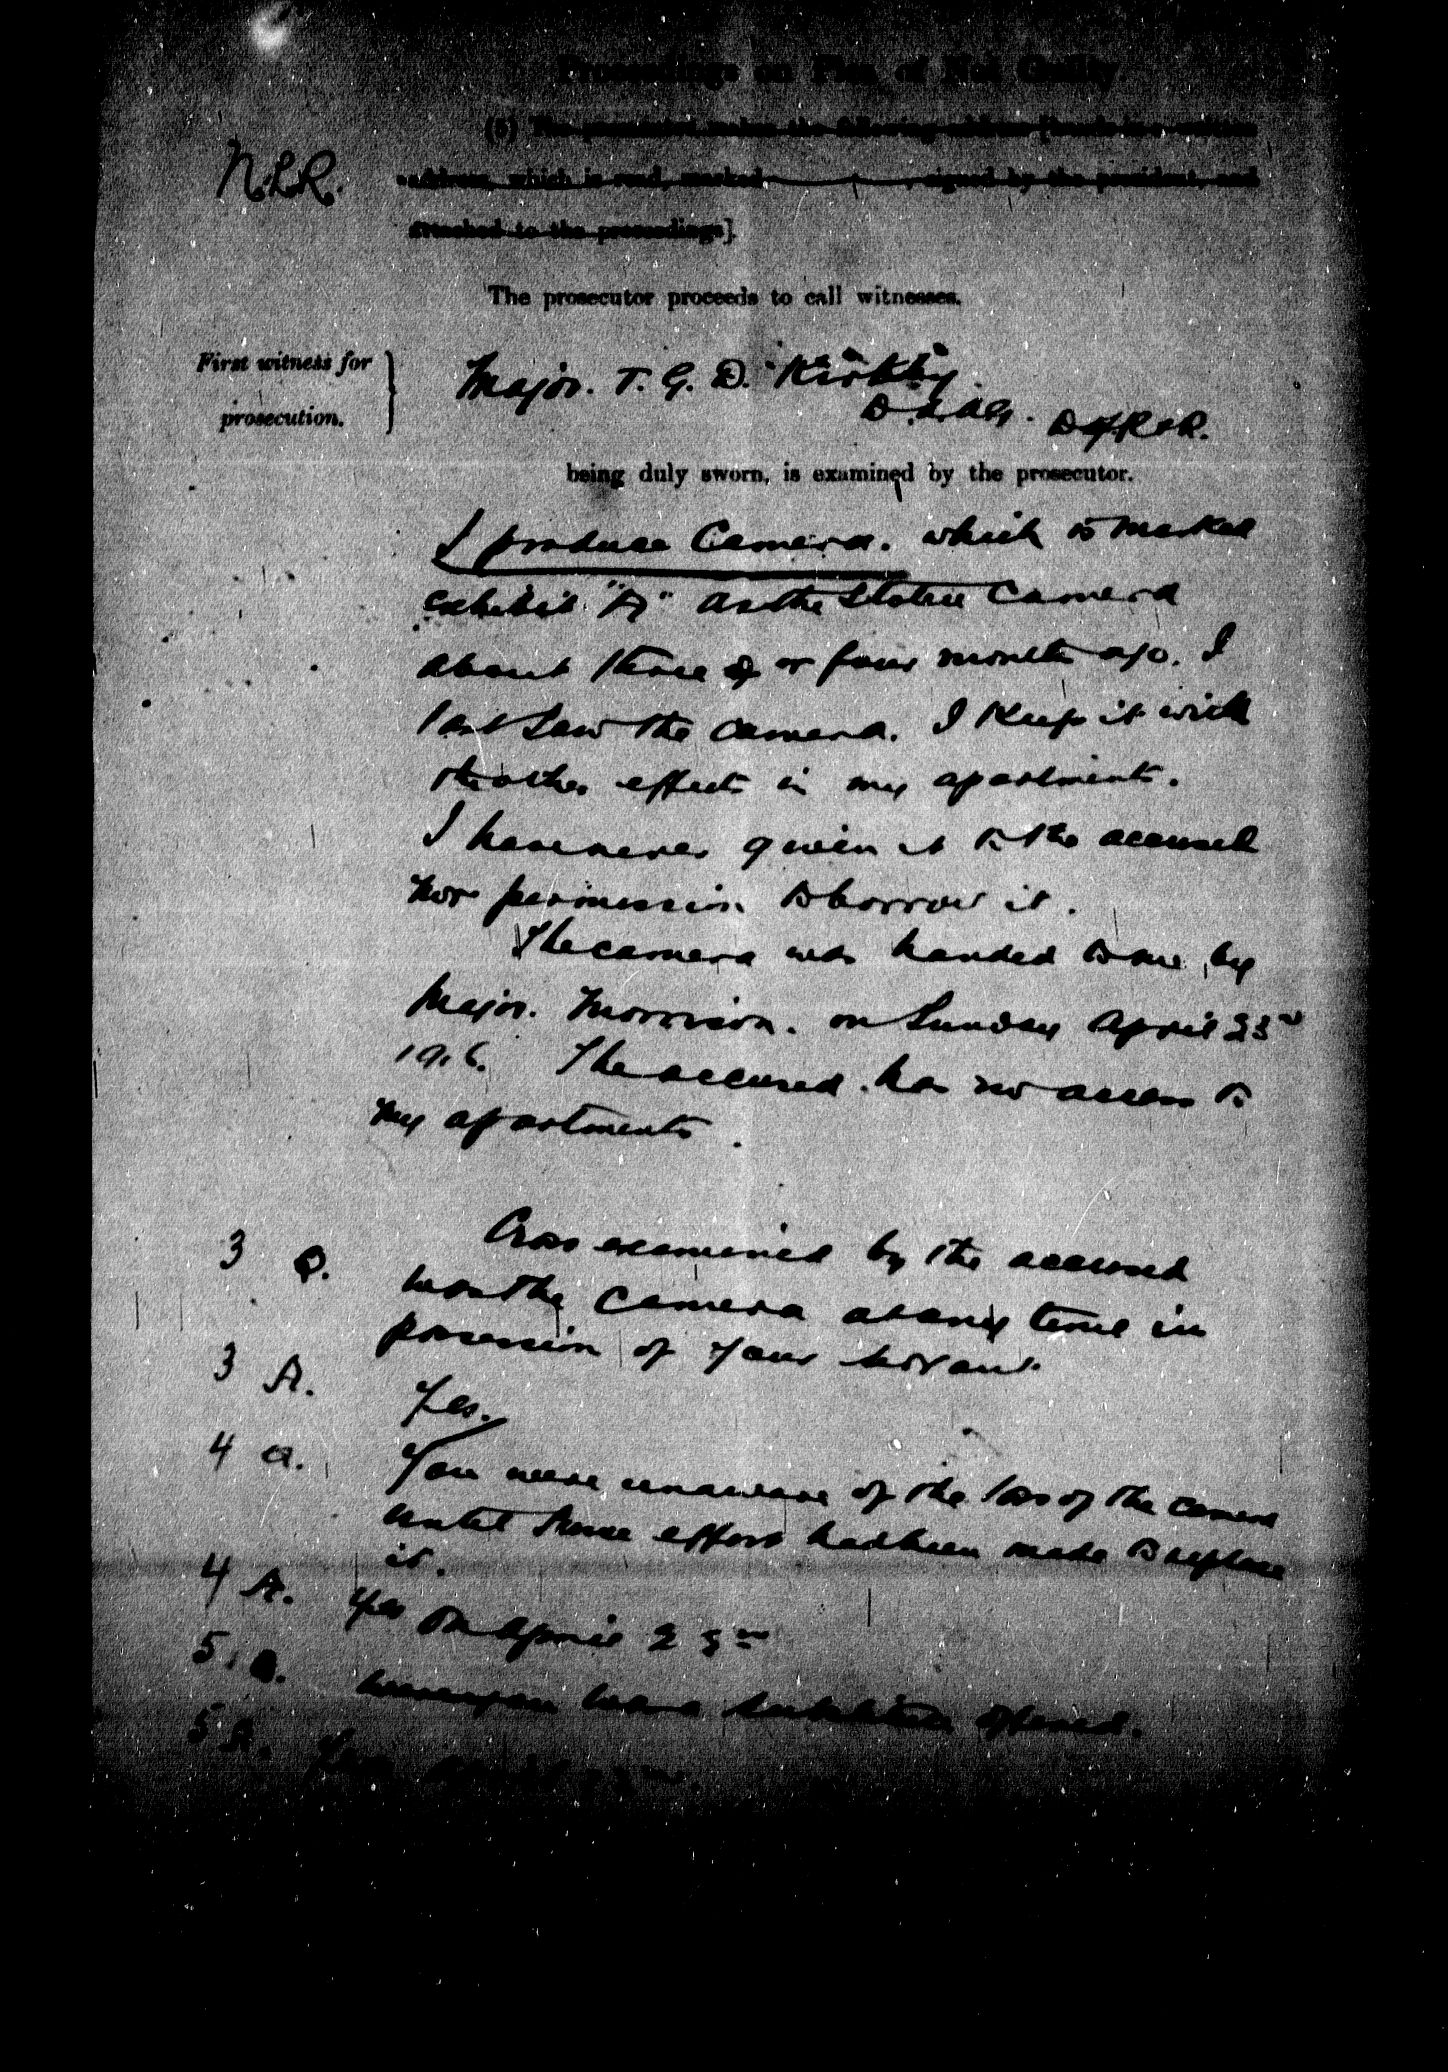 Proceedings on Plea of Not Guilty.
(5) The prosecutor makes the following address [hands in a written
address, which is read, marked , signed by the president, and
attached to the proceedings].
N.L.R.
The prosecutor proceeds to call witnesses.
First witness for
prosecution.
Major. T. G. D. Kirkby.
being duly sworn, is examined by the prosecutor.
I produce Camera. which is marked
exhibit "A" as the stolen Camera
about three or four months ago. I
last saw the camera. I keep it with
the other effects in my apartments.
I have never given it to the accused
nor permission to borrow it.
The camera was handed to me by
Major. Morrison. on Sunday April 23rd
1916. The accused has no access to
my apartments.
Cross examined by the accused
3 Q. Was the camera at any time in
possession of your servant.
3 A. Yes.
4 Q. You were unaware of the loss of the camera
until some effort had been made to replace
it.
4 A. Yes on April 23rd
5. Q. offered.
5 A.